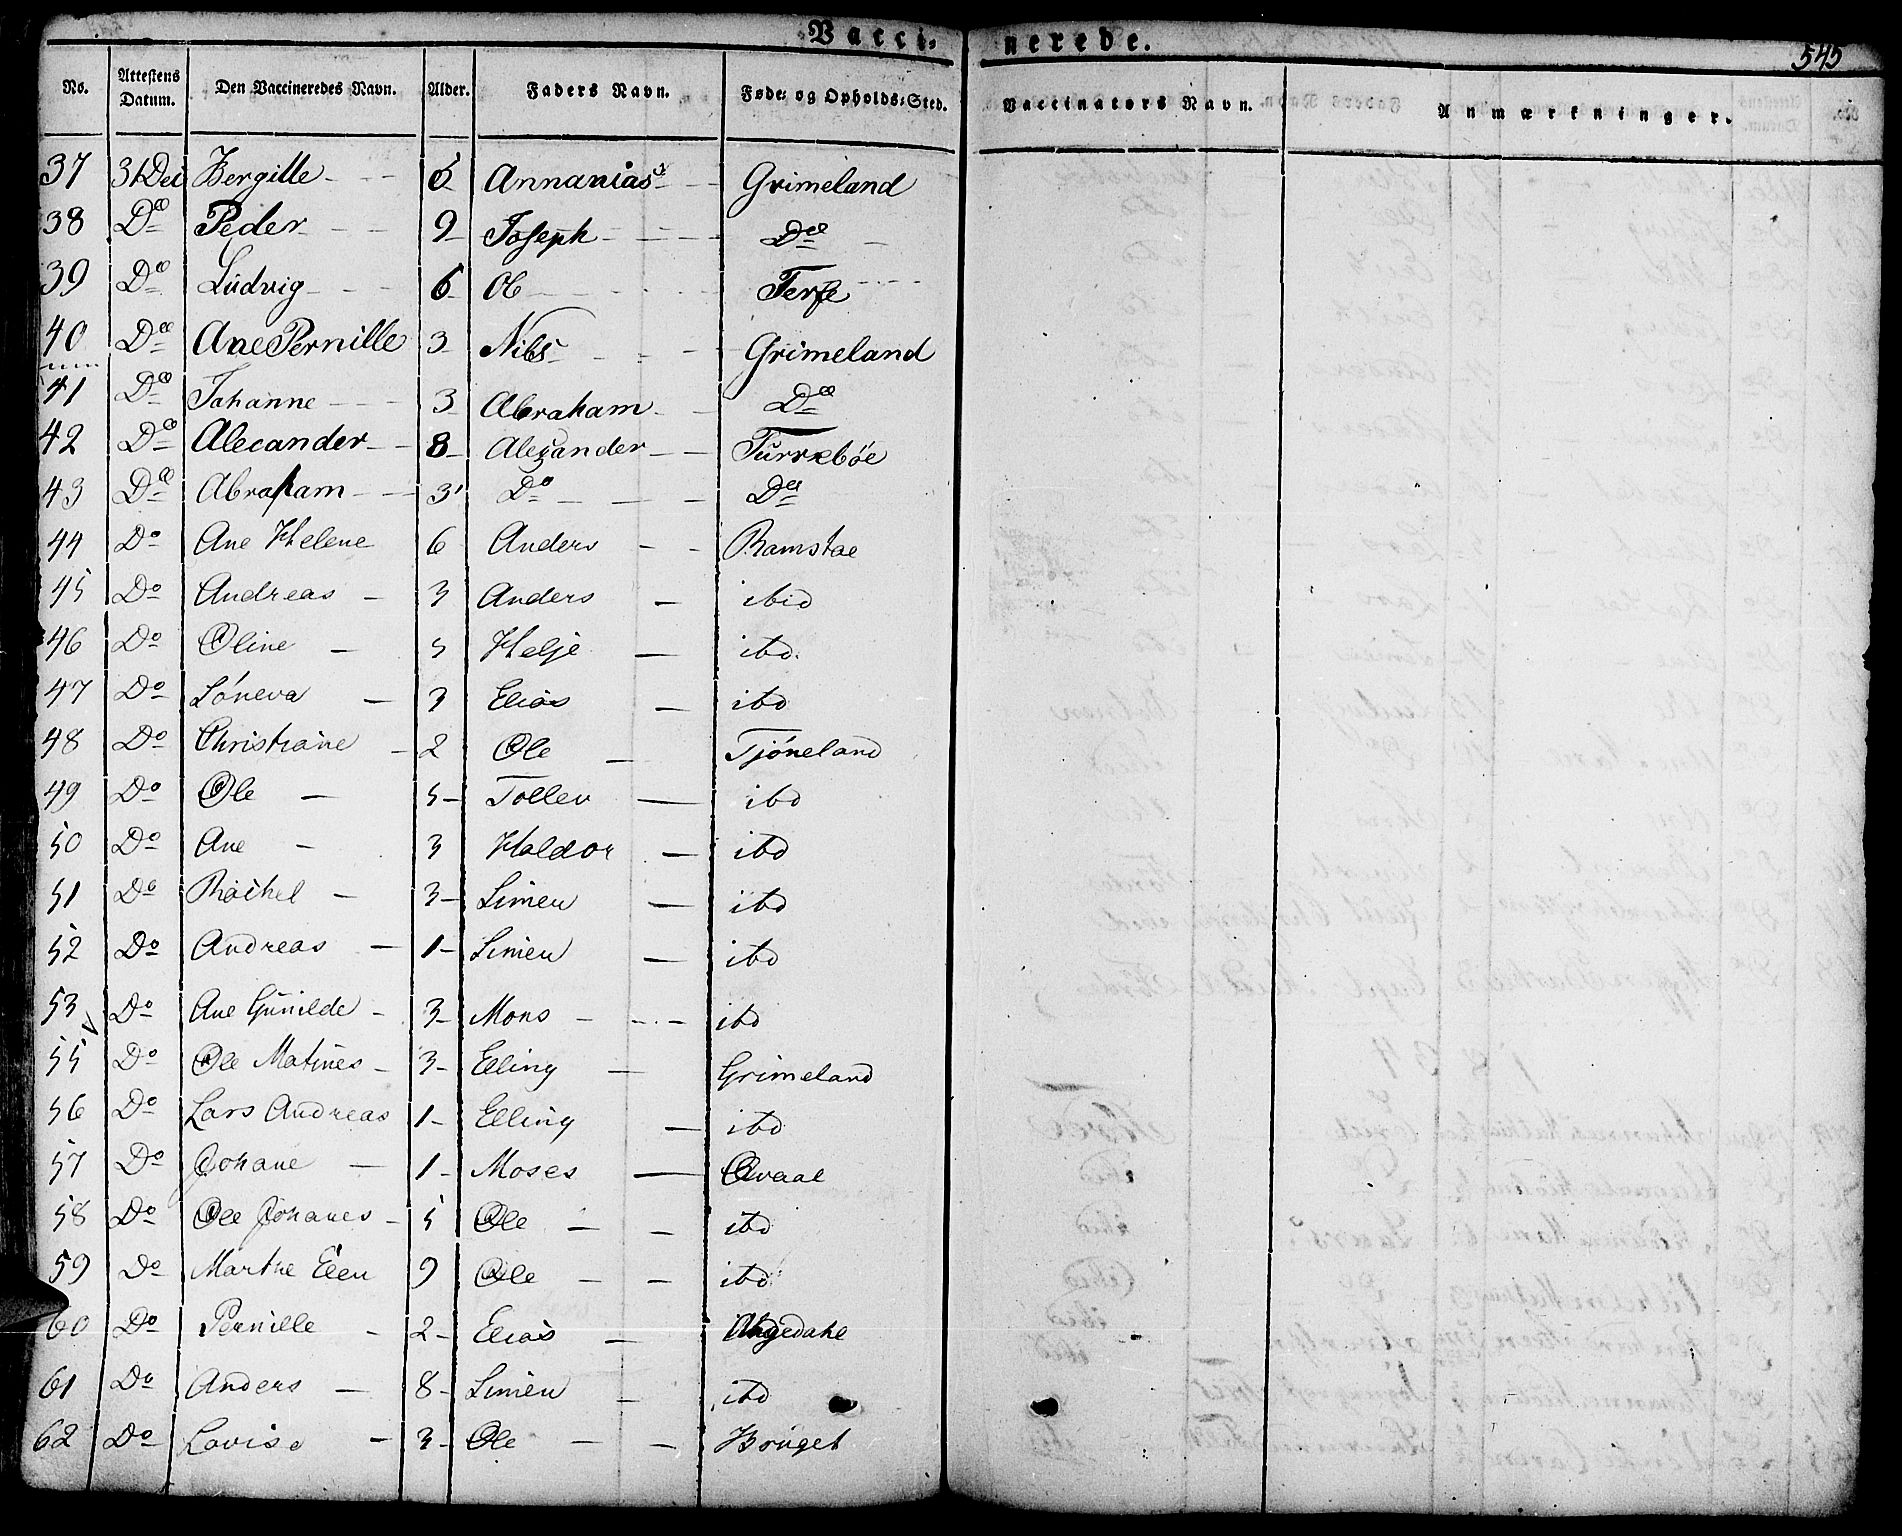 Vacci-nerede.
545
No. Attestens Datum. Den Vaccineredes Navn. Alder. Faders Navn. Føde- og Opholds-Sted. Vaccinators Navn. Anmærkninger.
37 31 Dec Bergille 6 Annanias Grimeland
38 Do Peder 9 Joseph Do
39 Do Ludvig 6 Ole
40 Do Ane Pernille 3 Nils Grimeland
41 Do Johanne 3 Abraham Do
42 Do Alecander 8 Alexander Turrebøe
43 Do Abraham 3 Do Do
44 Do Ane Helene 6 Anders Ramstae
45 Do Andreas 3 Anders ibid
46 Do Oline 5 Helje ibd.
47 Do Løneva 3 Elias ibd
48 Do Christiane 2 Ole Tjøneland
49 Do Ole 5 Tollev ibd
50 Do Ane 3 Haldor ibd
51 Do Rachel 3 Simen ibd
52 Do Andreas 1 Simen ibd
53 Do Ane Gunilde 3 Mons ibd
55 Do Ole Matines 3 Elling Grimeland
56 Do Lars Andreas 1 Elling ibd
57 Do Johane 1 Moses Qvaal
58 Do Ole Johanes 5 Ole ibd
59 Do Marthe Elen 9 Ole ibd
60 Do Pernille 2 Elias
61 Do Anders 8 Simen ibd
62 Do Lovise 3 Ole Bruget